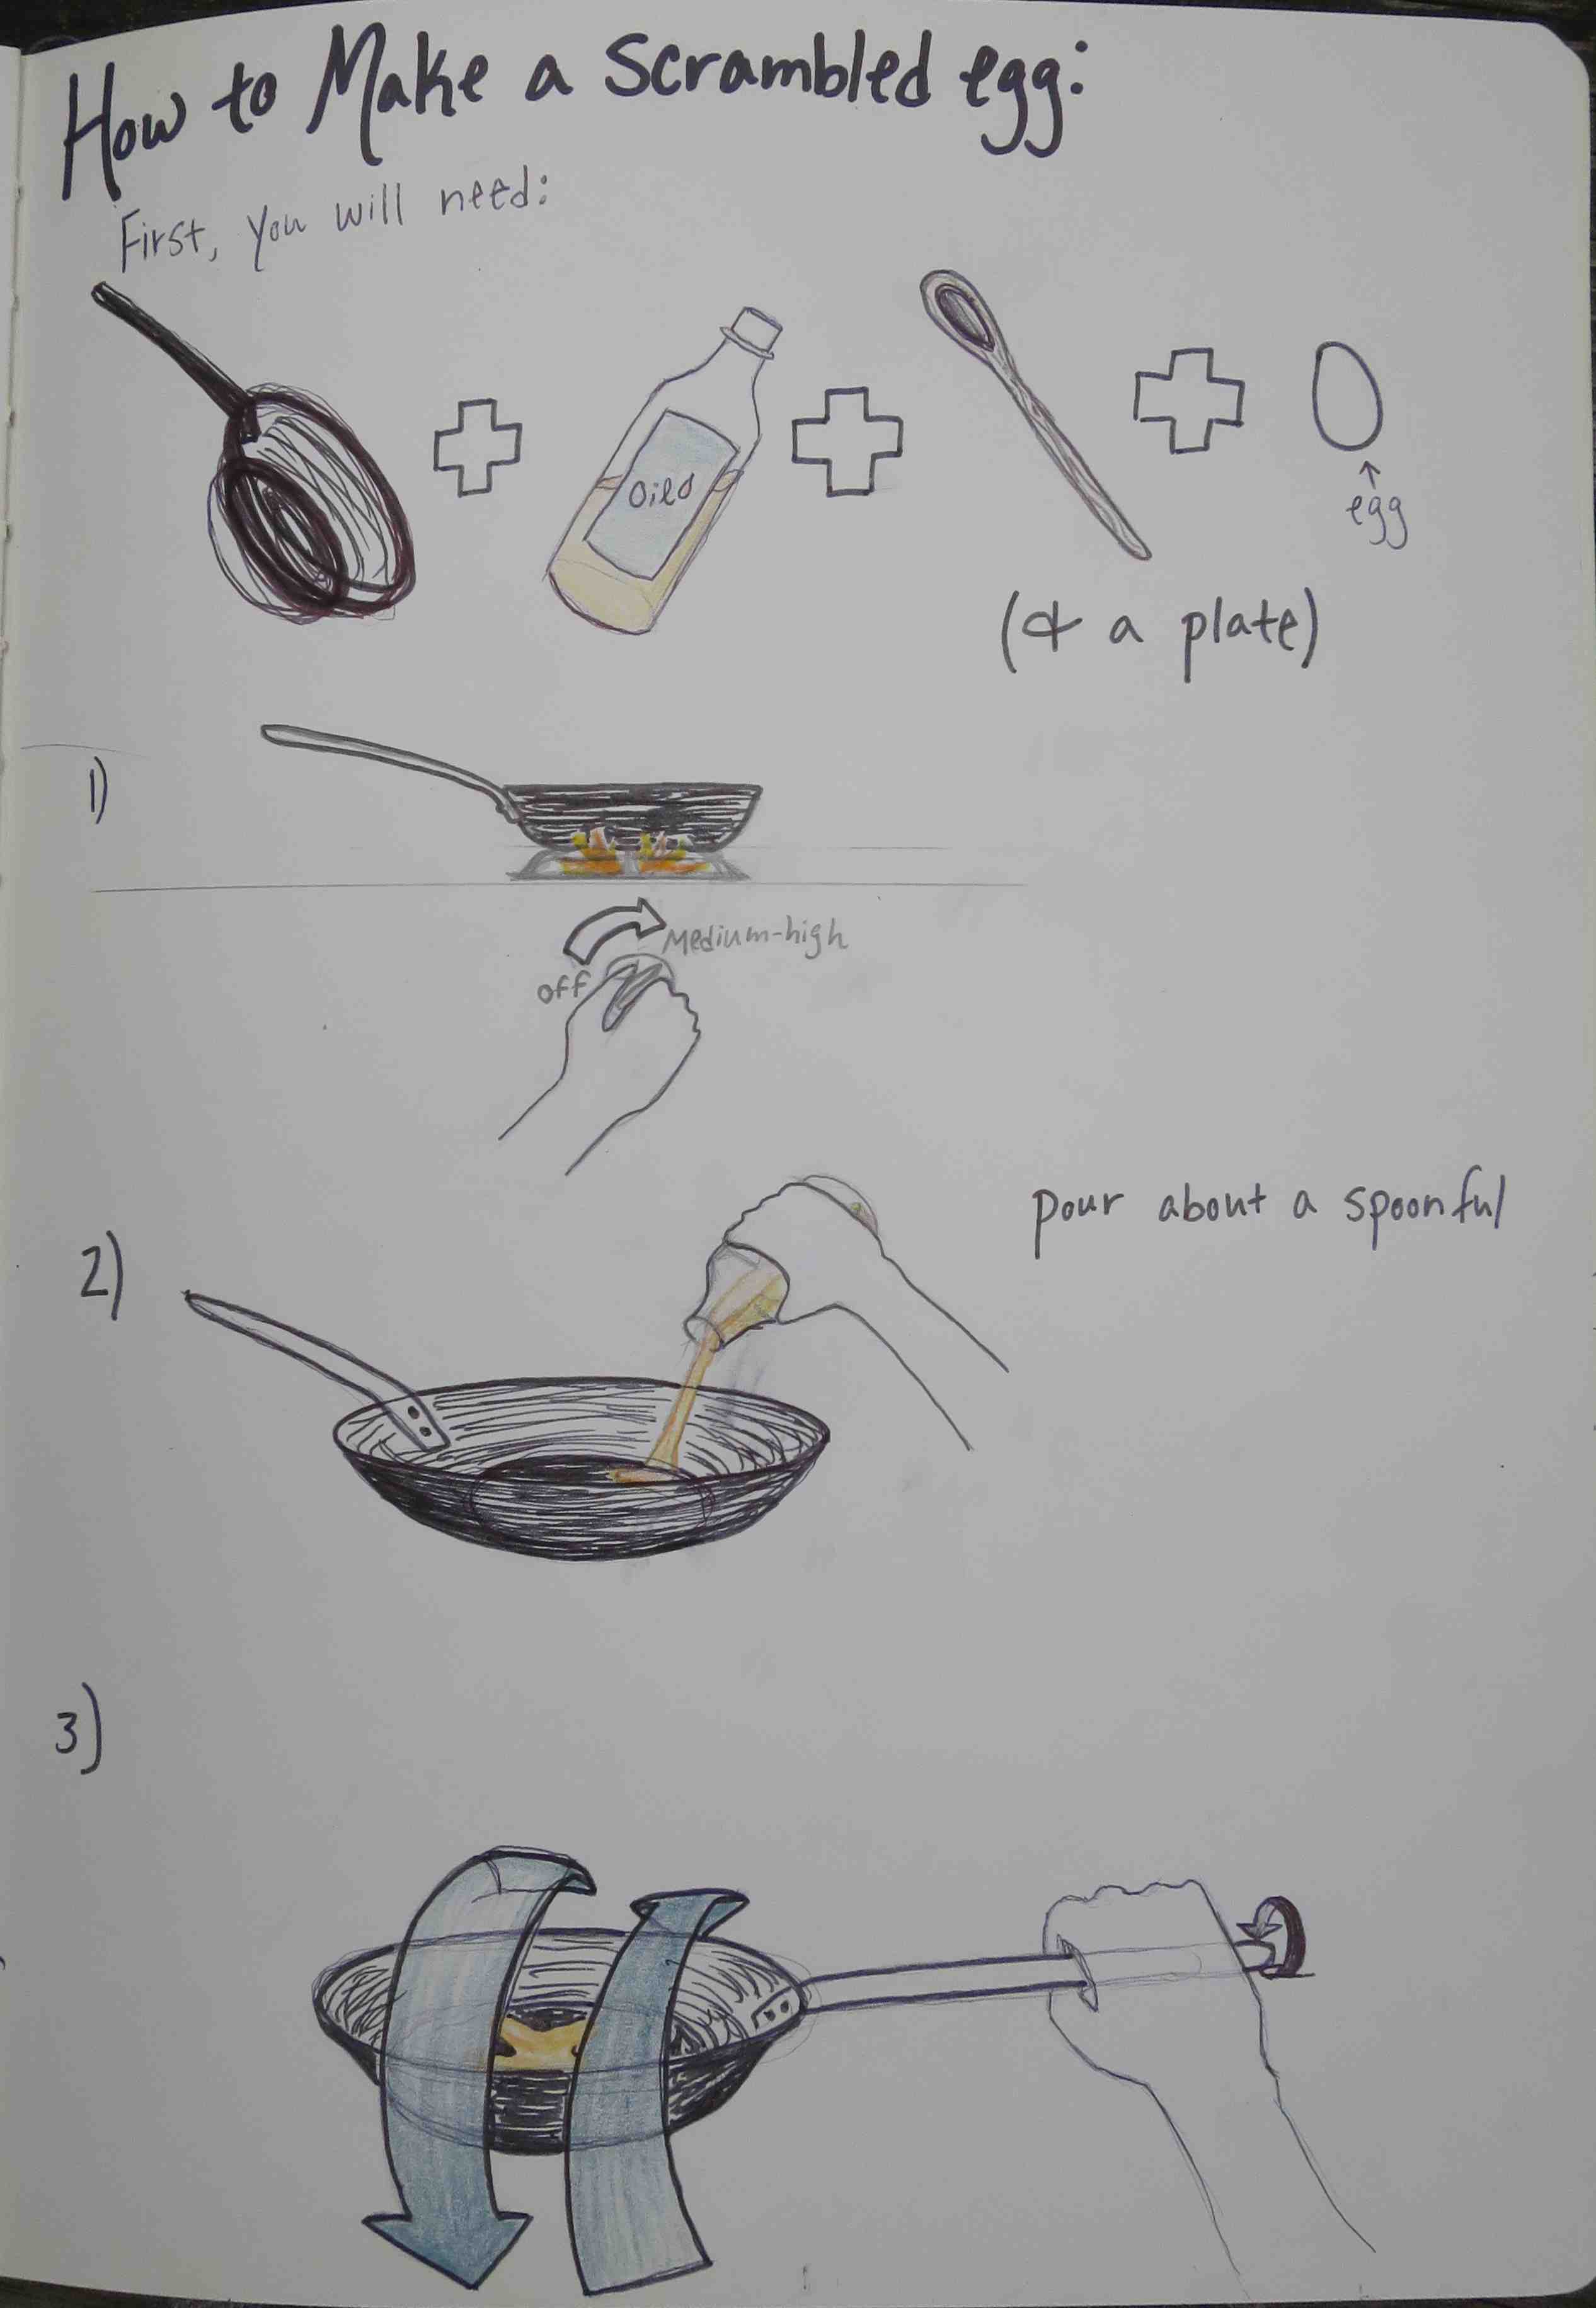 How to Make a scrambled egg:
First, you will need:
Oil
egg
(& a plate)
1)
Medium-high
off
2)
pour about a spoonful
3)